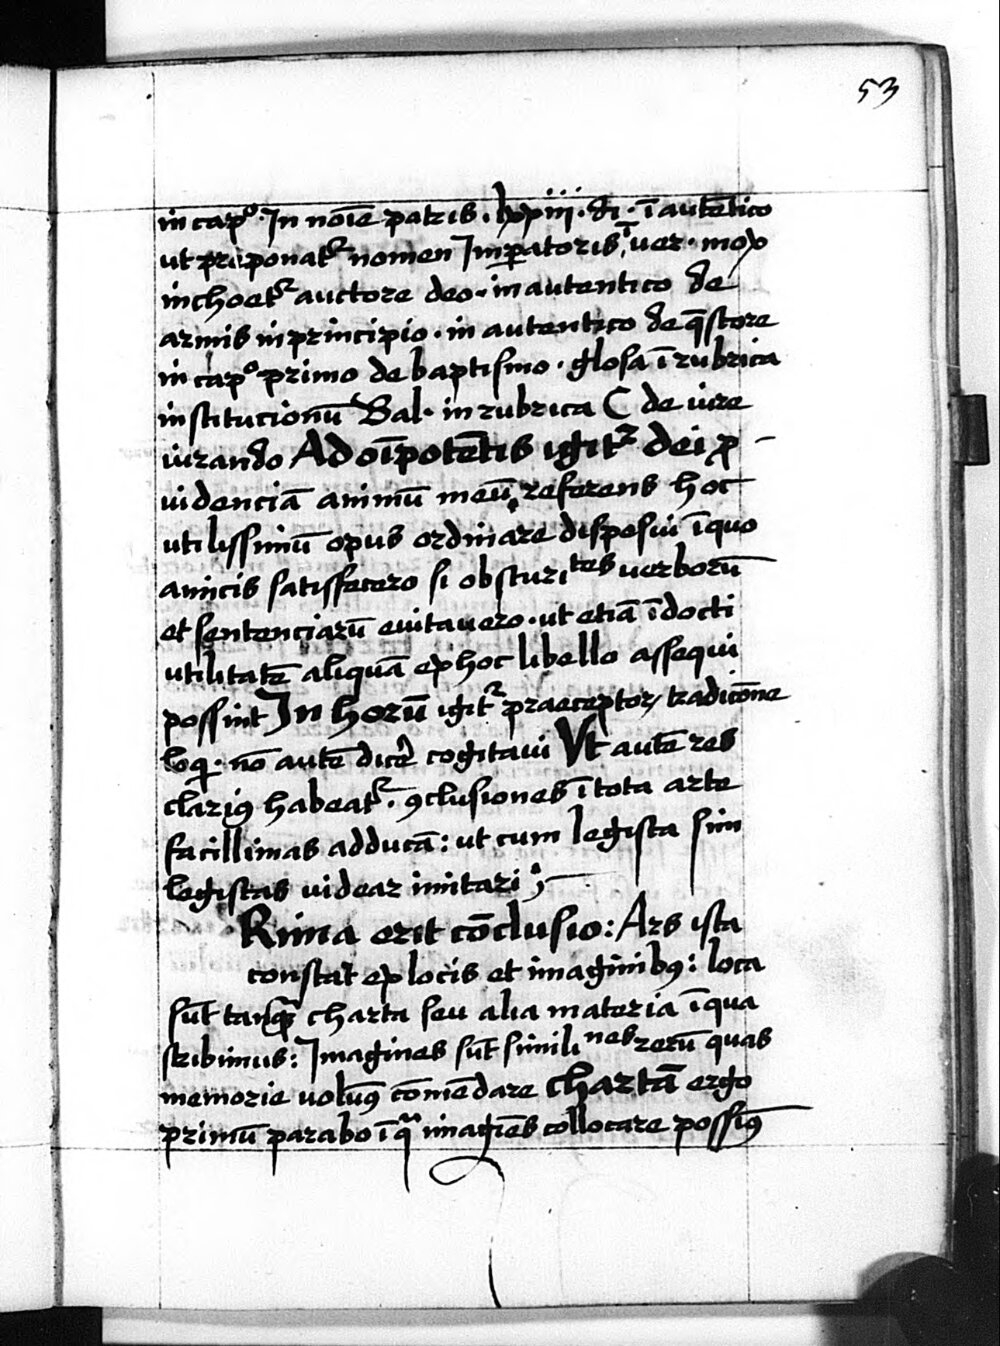 53
in cap° · In noīe patris · di · ī autētico
ut praeponat᷒ nomen Imꝑatoris, uer · mox
inchoet᷒ auctore deo · in autentico de
armis in principio · in autentico de q̄store
in cap° primo de baptismo · glosa ī rubrica
institucionū Bal · in rubrica C de iure
iurando Ad oīpotētis igit᷒ dei ꝓ
uidenciā animū meū referens hoc
utilissimū opus ordinare disposui ī quo
amicis satisfecero si obscuritates uerborū
et sentenciarū euitauero · ut etiā īdocti
utilitatē aliquā ex hoc libello assequi
possint In horū igit᷒ praeceptoꝝ tradicōne
loqi · nō autē dice᷒ cogitaui Vt autē res
clariꝰ habeat᷒ · ꝯclusiones ī tota arte
facillimas adducā : ut cum legista sim
legistas uidear imitari ;
Rima erit cōclusio : Ars ista
constat ex locis et imaginibꝰ : loca
sūt tanqᷓ charta seu alia materia ī qua
scribimus : Imagines sūt similines rerū quas
memorie uolūꝰ cōmēdare chartā ergo
primū parabo ī qᷓ imagīes collocare possūꝰ